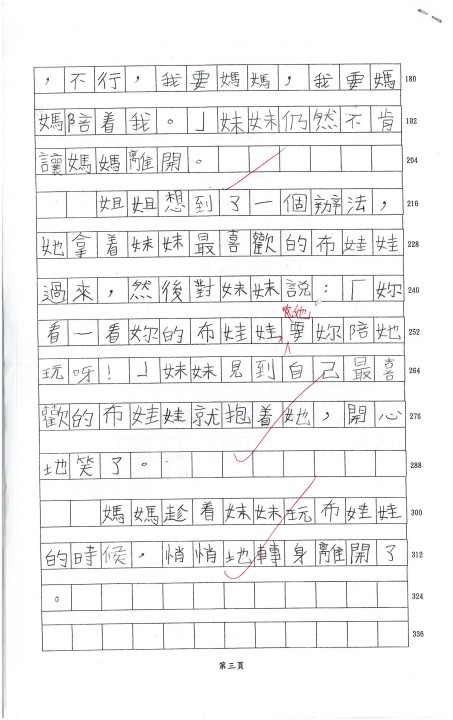 ，不行，我要媽媽，我要媽 180
媽陪着我。」妹妹仍然不肯 192
讓媽媽離開。 204
姐姐想到了一個辦法， 216
她拿着妹妹最喜歡的布娃娃 228
過來，然後對妹妹說：「妳 240
看一看妳的布娃娃，要妳陪她 252
玩呀！」妹妹見到自己最喜 264
歡的布娃娃就抱着她，開心 276
地笑了。 288
媽媽趁着妹妹玩布娃娃 300
的時候，悄悄地轉身離開了 312
。 324
336
第三頁